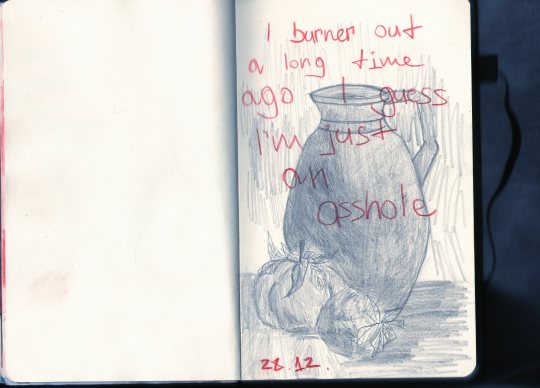 I burner out
a long time
ago I guess
I'm just
an
asshole
28.12.